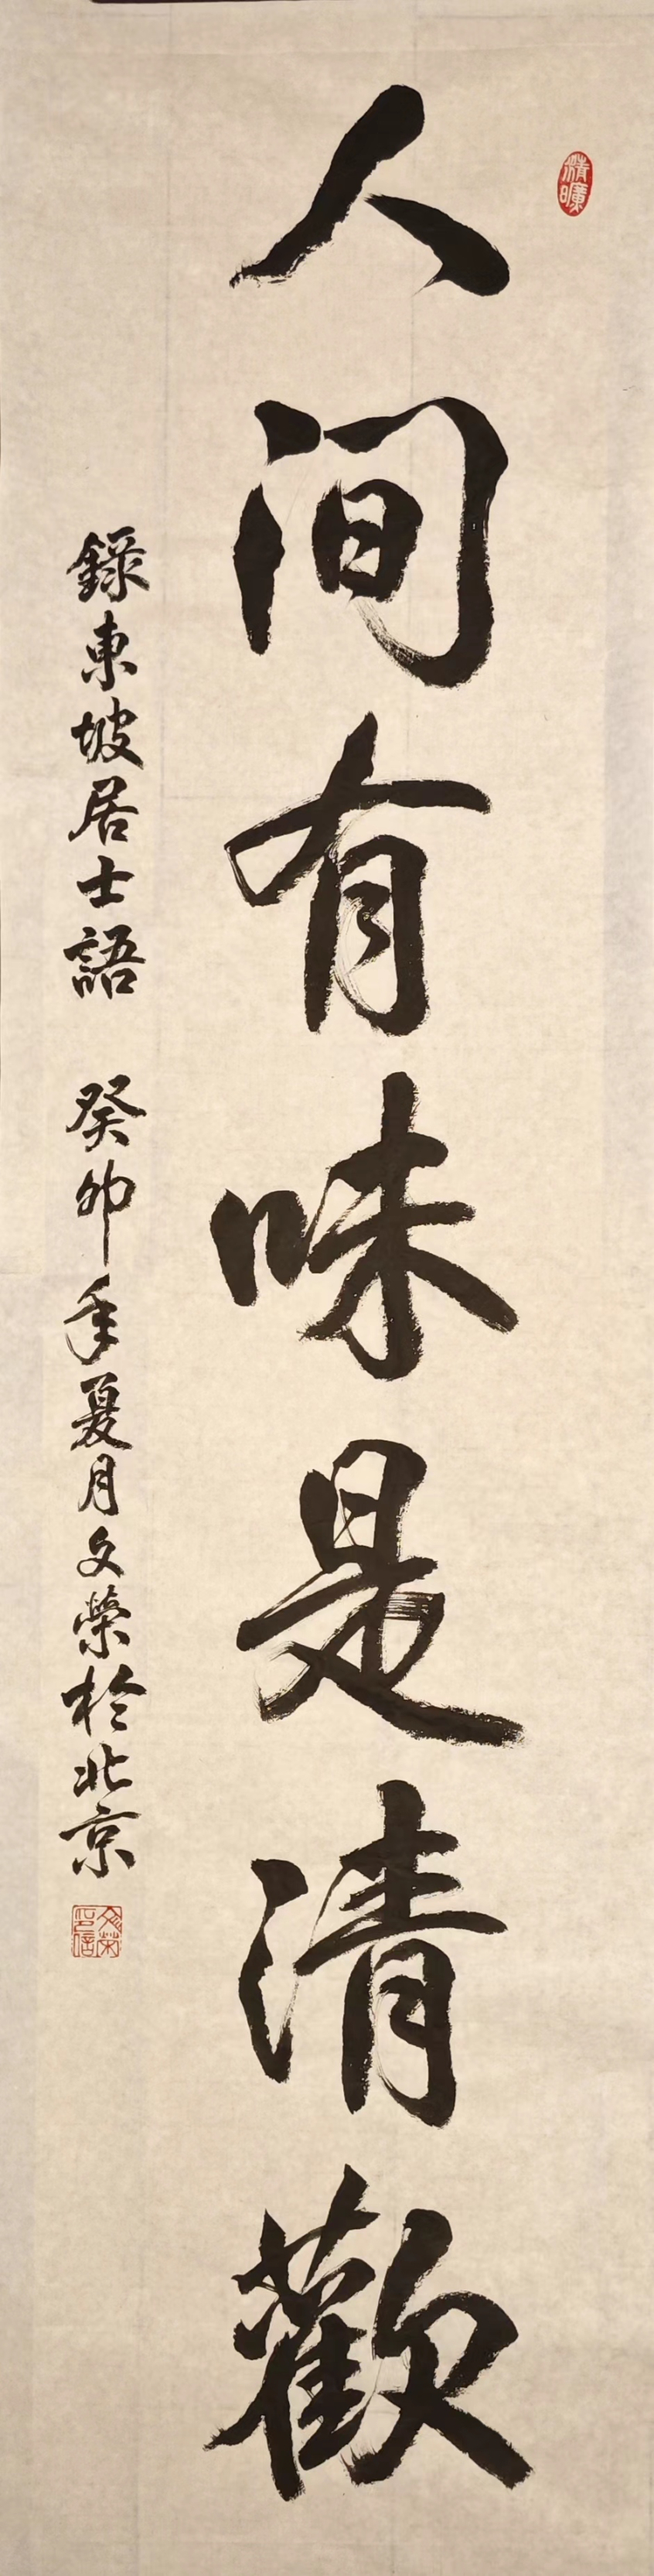 人間有味是清歡
錄東坡居士語 癸卯年夏月文榮於北京
文荣印信